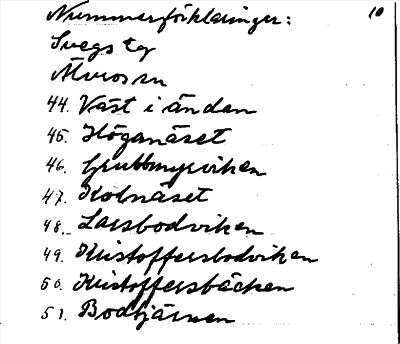 Nummerförklaringer:
10
Svegs tg
Älvros sn
44. Väst i ändan
45. Höganäset
46. Grubbmyrviken
47. Kolnäset
48. Larsbodviken
49. Kristoffersbodviken
50. Kristoffersbäcken
51. Bodtjärnen